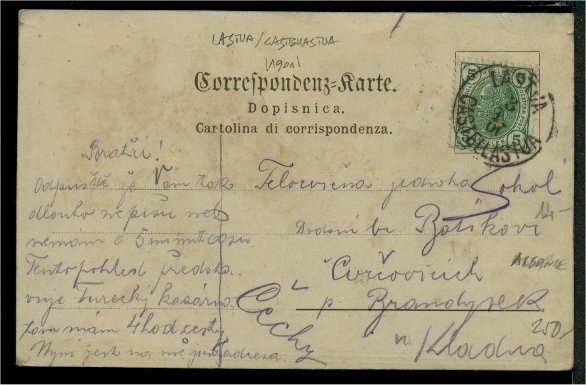 LASTVA / CASTELLASTVA
(1901)
Correspondenz-Karte.
Dopisnica.
Cartolina di corrispondenza.
LASTVA
CASTELLASTVA
5
Bratři!
Odpusťte že Vám tak
dlouho nepíšu neb
nemám ni 5 minut času.
Tento pohled předsta
vuje Turecký kasárna
tam mám 4 hod cesty
Nyní jest na mě adresa.
Tělocvična jednota Sokol
Dodání br.
Cvrčovicích
p. Brandýsek
Čechy
n. Kladna
14.-
250.-